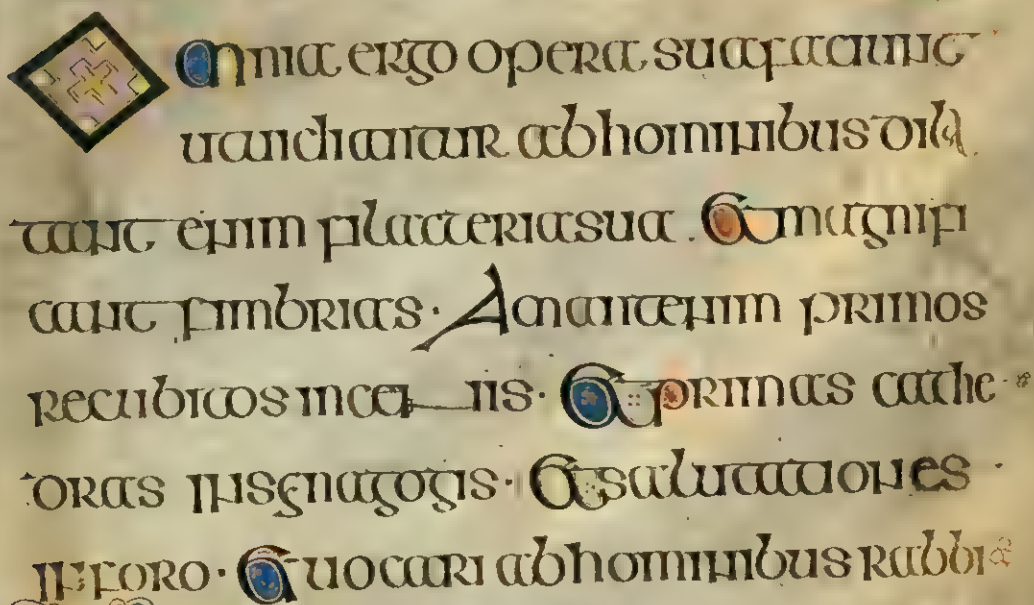 Omnia ergo opera sua faciunt
ut uideantur ab hominibus Dila
tant enim filacteria sua. Et magnifi
cant fimbrias. Amant enim primos
recubitos in ce nis. Et primas cathe
dras in senagogis. Et salutationes
in foro. Et uocari ab hominibus rabbi